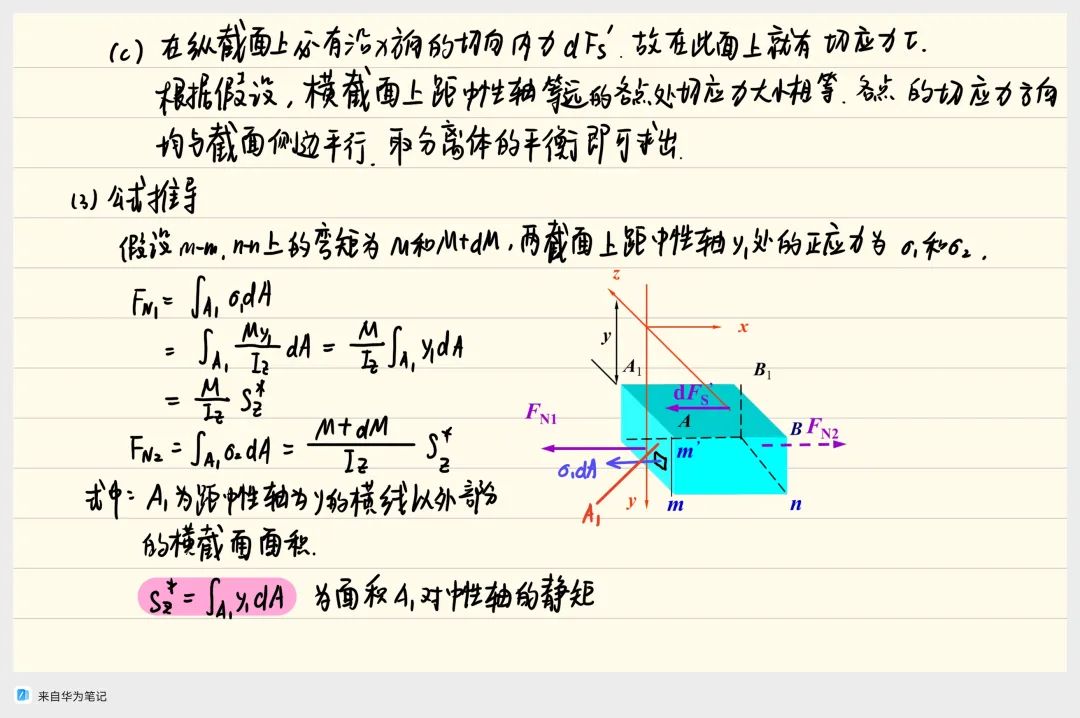 (c) 在纵截面上还有沿x方向的切向内力dFs′.故在此面上就有切应力τ.
根据假设,横截面上距中性轴等远的各点处切应力大小相等.各点的切应力方向
均与截面侧边平行.取分离体的平衡即可求出.
(3)公式推导
假设m-m,n-n上的弯矩为M和M+dM,两截面上距中性轴y₁处的正应力为σ₁和σ₂.
F_N₁=∫_A₁ σ₁dA
=∫_A₁ My₁/Iz dA = M/Iz ∫_A₁ y₁dA
= M/Iz Sz*
F_N₂=∫_A₁ σ₂dA = M+dM/Iz Sz*
式中:A₁为距中性轴为y的横线以外部分
的横截面面积.
Sz*=∫_A₁ y₁dA 为面积A₁对中性轴的静矩
z
x
y
A₁
B₁
dFS′
FN1
A
B
FN2
m′
σ₁dA
A₁
y
m
n
来自华为笔记